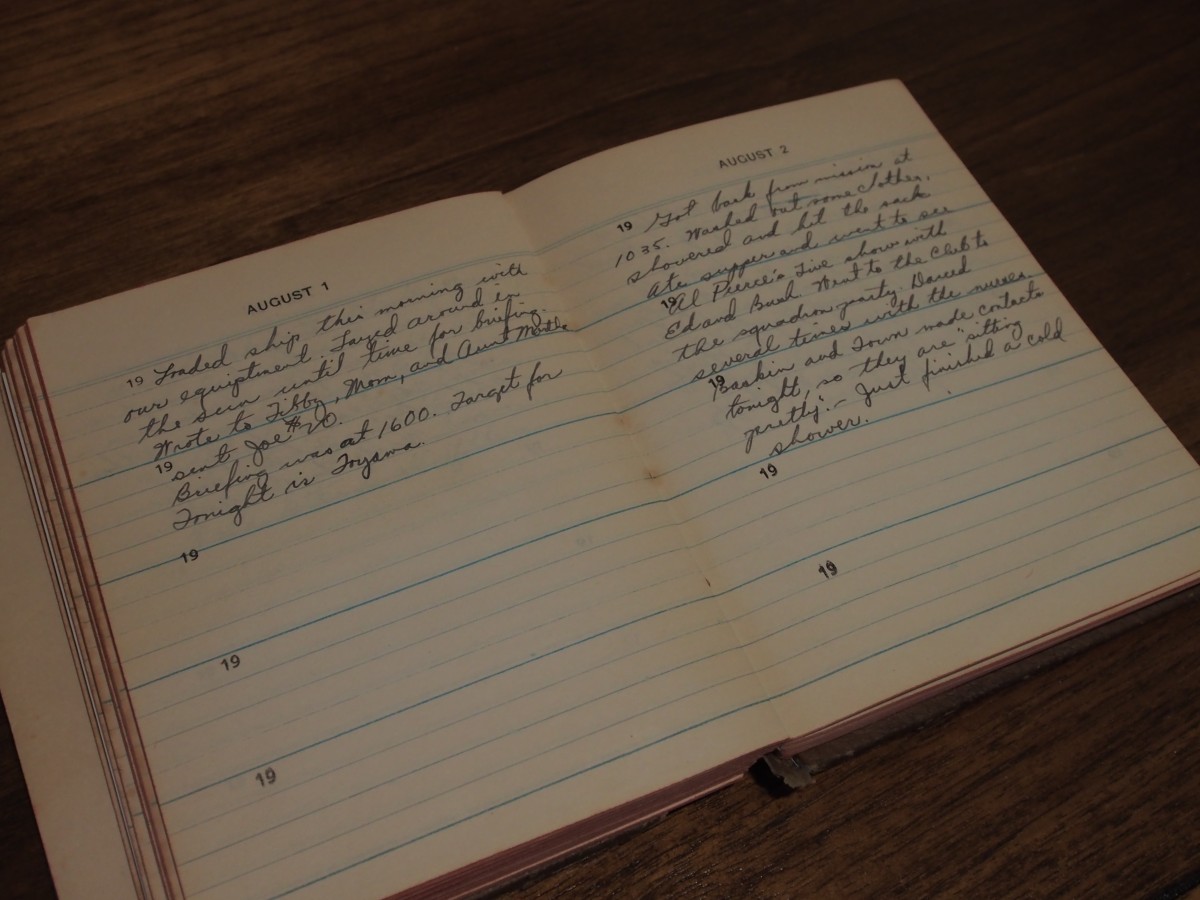 AUGUST 1
19 Loaded ship this morning with
our equiptment. Layed around in
the sun until time for briefing.
Wrote to Tibby, Mom, and Aunt Mertle
19 sent Joe $20.
Briefing was at 1600. Target for
Tonight is Toyama.
19
19
19
AUGUST 2
19 Got back from mission at
1035. Washed out some clothes,
showered and hit the sack
Ate supper and went to see
19 Al Pierce's Live show with
Ed and Bush. Went to the Club to
the squadron party. Danced
several times with the nurses.
19 Baskin and Town made contacts
tonight, so they are "sitting
pretty". - Just finished a cold
shower.
19
19